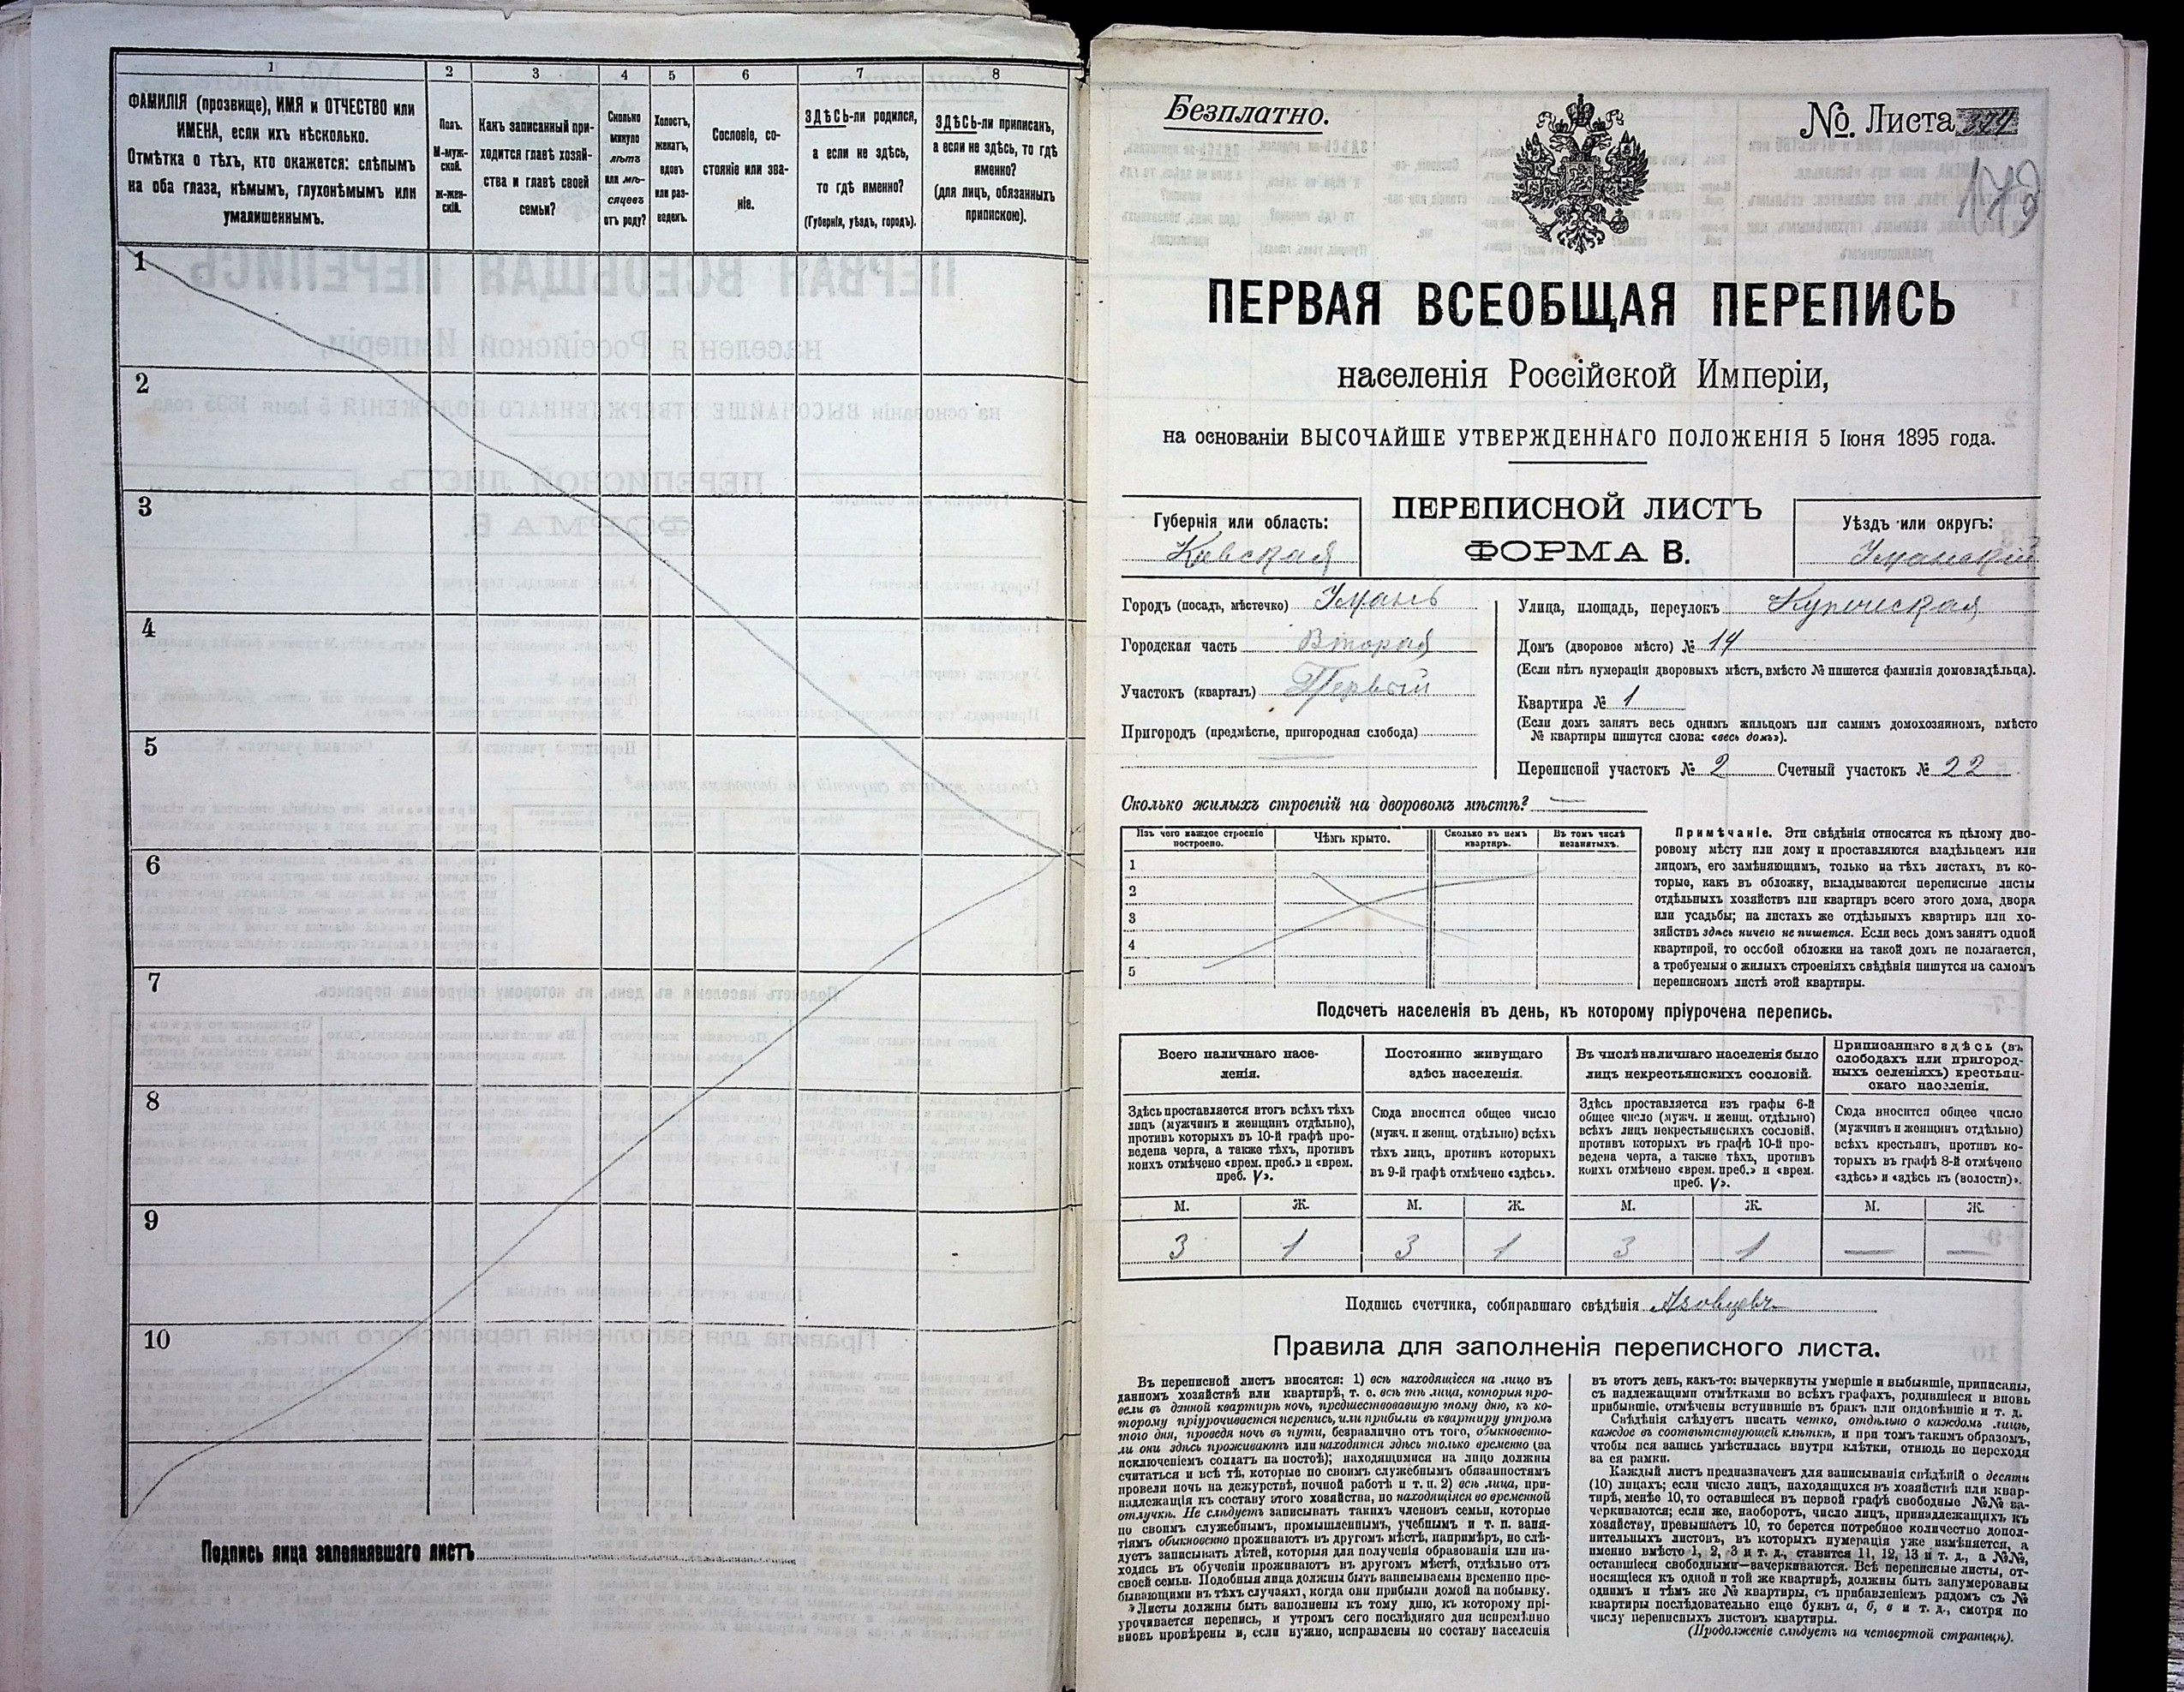 1
2
3
4
5
6
7
8
ФАМИЛІЯ (прозвище), ИМЯ и ОТЧЕСТВО или
ИМЕНА, если ихъ нѣсколько.
Отмѣтка о тѣхъ, кто окажется: слѣпымъ
на оба глаза, нѣмымъ, глухонѣмымъ или
умалишеннымъ.
Полъ.
М-муж-
ской.
ж-жен-
скій.
Какъ записанный при-
ходится главѣ хозяй-
ства и главѣ своей
семьи?
Сколько
минуло
лѣтъ
или мѣ-
сяцевъ
отъ роду?
Холостъ,
женатъ,
вдовъ
или раз-
веденъ.
Сословіе, со-
стояніе или зва-
ніе.
ЗДѢСЬ-ли родился,
а если не здѣсь,
то гдѣ именно?
(Губернія, уѣздъ, городъ).
ЗДѢСЬ-ли приписанъ,
а если не здѣсь, то гдѣ
именно?
(для лицъ, обязанныхъ
припискою).
1
2
3
4
5
6
7
8
9
10
Подпись лица заполнявшаго листъ
Безплатно.
№. Листа
ПЕРВАЯ ВСЕОБЩАЯ ПЕРЕПИСЬ
населенія Россійской Имперіи,
на основаніи ВЫСОЧАЙШЕ УТВЕРЖДЕННАГО ПОЛОЖЕНІЯ 5 Іюня 1895 года.
Губернія или область:
Кіевская
ПЕРЕПИСНОЙ ЛИСТЪ
ФОРМА В.
Уѣздъ или округъ:
Уманскій
Городъ (посадъ, мѣстечко) Умань
Городская часть Вторая
Участокъ (кварталъ) Первый
Пригородъ (предмѣстье, пригородная слобода)
Улица, площадь, переулокъ Купеческая
Домъ (дворовое мѣсто) № 14
(Если нѣтъ нумераціи дворовыхъ мѣстъ, вмѣсто № пишется фамилія домовладѣльца).
Квартира № 1
(Если домъ занятъ весь однимъ жильцомъ или самимъ домохозяиномъ, вмѣсто
№ квартиры пишутся слова: «весь домъ»).
Переписной участокъ № 2 Счетный участокъ № 22
Сколько жилыхъ строеній на дворовомъ мѣстѣ? —
Изъ чего каждое строеніе
построено.
Чѣмъ крыто.
Сколько въ немъ
квартиръ.
Въ томъ числѣ
незанятыхъ.
1
2
3
4
5
Примѣчаніе. Эти свѣдѣнія относятся къ цѣлому дво-
ровому мѣсту или дому и проставляются владѣльцемъ или
лицомъ, его замѣняющимъ, только на тѣхъ листахъ, въ ко-
торые, какъ въ обложку, вкладываются переписные листы
отдѣльныхъ хозяйствъ или квартиръ всего этого дома, двора
или усадьбы; на листахъ же отдѣльныхъ квартиръ или хо-
зяйствъ здѣсь ничего не пишется. Если весь домъ занятъ одной
квартирой, то особой обложки на такой домъ не полагается,
а требуемыя о жилыхъ строеніяхъ свѣдѣнія пишутся на самомъ
переписномъ листѣ этой квартиры.
Подсчетъ населенія въ день, къ которому пріурочена перепись.
Всего наличнаго насе-
ленія.
Здѣсь проставляется итогъ всѣхъ тѣхъ
лицъ (мужчинъ и женщинъ отдѣльно),
противъ которыхъ въ 10-й графѣ про-
ведена черта, а также тѣхъ, противъ
коихъ отмѣчено «врем. преб.» и «врем.
преб. V».
Постоянно живущаго
здѣсь населенія.
Сюда вносится общее число
(мужч. и женщ. отдѣльно) всѣхъ
тѣхъ лицъ, противъ которыхъ
въ 9-й графѣ отмѣчено «здѣсь».
Въ числѣ наличнаго населенія было
лицъ некрестьянскихъ сословій.
Здѣсь проставляется изъ графы 6-й
общее число (мужч. и женщ. отдѣльно)
всѣхъ лицъ некрестьянскихъ сословій,
противъ которыхъ въ графѣ 10-й про-
ведена черта, а также тѣхъ, противъ
коихъ отмѣчено «врем. преб.» и «врем.
преб. V».
Приписаннаго здѣсь (въ
слободахъ или пригород-
ныхъ селеніяхъ) крестьян-
скаго населенія.
Сюда вносится общее число
(мужчинъ и женщинъ отдѣльно)
всѣхъ крестьянъ, противъ ко-
торыхъ въ графѣ 8-й отмѣчено
«здѣсь» и «здѣсь къ (волости)».
М. Ж. М. Ж. М. Ж. М. Ж.
3 1 3 1 3 1 — —
Подпись счетчика, собиравшаго свѣдѣнія
Правила для заполненія переписного листа.
Въ переписной листъ вносятся: 1) всѣ находящіеся на лицо въ
данномъ хозяйствѣ или квартирѣ, т. е. всѣ тѣ лица, которыя про-
вели въ данной квартирѣ ночь, предшествовавшую тому дню, къ ко-
торому пріурочивается перепись, или прибыли въ квартиру утромъ
того дня, проведя ночь въ пути, безразлично отъ того, обыкновенно-
ли они здѣсь проживаютъ или находятся здѣсь только временно (за
исключеніемъ солдатъ на постоѣ); находящимися на лицо должны
считаться и всѣ тѣ, которые по своимъ служебнымъ обязанностямъ
провели ночь на дежурствѣ, ночной работѣ и т. п. 2) всѣ лица, при-
надлежащія къ составу этого хозяйства, но находящіяся во временной
отлучкѣ. Не слѣдуетъ записывать такихъ членовъ семьи, которые
по своимъ служебнымъ, промышленнымъ, учебнымъ и т. п. заня-
тіямъ обыкновенно проживаютъ въ другомъ мѣстѣ, напримѣръ, не слѣ-
дуетъ записывать дѣтей, которыя для полученія образованія или на-
ходясь въ обученіи проживаютъ въ другомъ мѣстѣ, отдѣльно отъ
своей семьи. Подобныя лица должны быть записываемы временно пре-
бывающими въ тѣхъ случаяхъ, когда они прибыли домой на побывку.
Листы должны быть заполнены къ тому дню, къ которому прі-
урочивается перепись, и утромъ сего послѣдняго дня непремѣнно
вновь провѣрены и, если нужно, исправлены по составу населенія
въ этотъ день, какъ-то: вычеркнуты умершіе и выбывшіе, приписаны,
съ надлежащими отмѣтками во всѣхъ графахъ, родившіеся и вновь
прибывшіе, отмѣчены вступившіе въ бракъ или овдовѣвшіе и т. д.
Свѣдѣнія слѣдуетъ писать четко, отдѣльно о каждомъ лицѣ,
каждое въ соотвѣтствующей клѣткѣ, и при томъ такимъ образомъ,
чтобы вся запись умѣстилась внутри клѣтки, отнюдь не переходя
за ея рамки.
Каждый листъ предназначенъ для записыванія свѣдѣній о десяти
(10) лицахъ; если число лицъ, находящихся въ хозяйствѣ или квар-
тирѣ, менѣе 10, то оставшіеся въ первой графѣ свободные №№ за-
черкиваются; если же, наоборотъ, число лицъ, принадлежащихъ къ
хозяйству, превышаетъ 10, то берется потребное количество допол-
нительныхъ листовъ, въ которыхъ нумерація уже измѣняется, а
именно вмѣсто 1, 2, 3 и т. д., ставится 11, 12, 13 и т. д., а №№,
оставшіеся свободными—зачеркиваются. Всѣ переписные листы, от-
носящіеся къ одной и той же квартирѣ, должны быть занумерованы
однимъ и тѣмъ же № квартиры, съ прибавленіемъ рядомъ съ №
квартиры послѣдовательно еще буквъ а, б, в и т. д., смотря по
числу переписныхъ листовъ квартиры.
(Продолженіе слѣдуетъ на четвертой страницѣ).